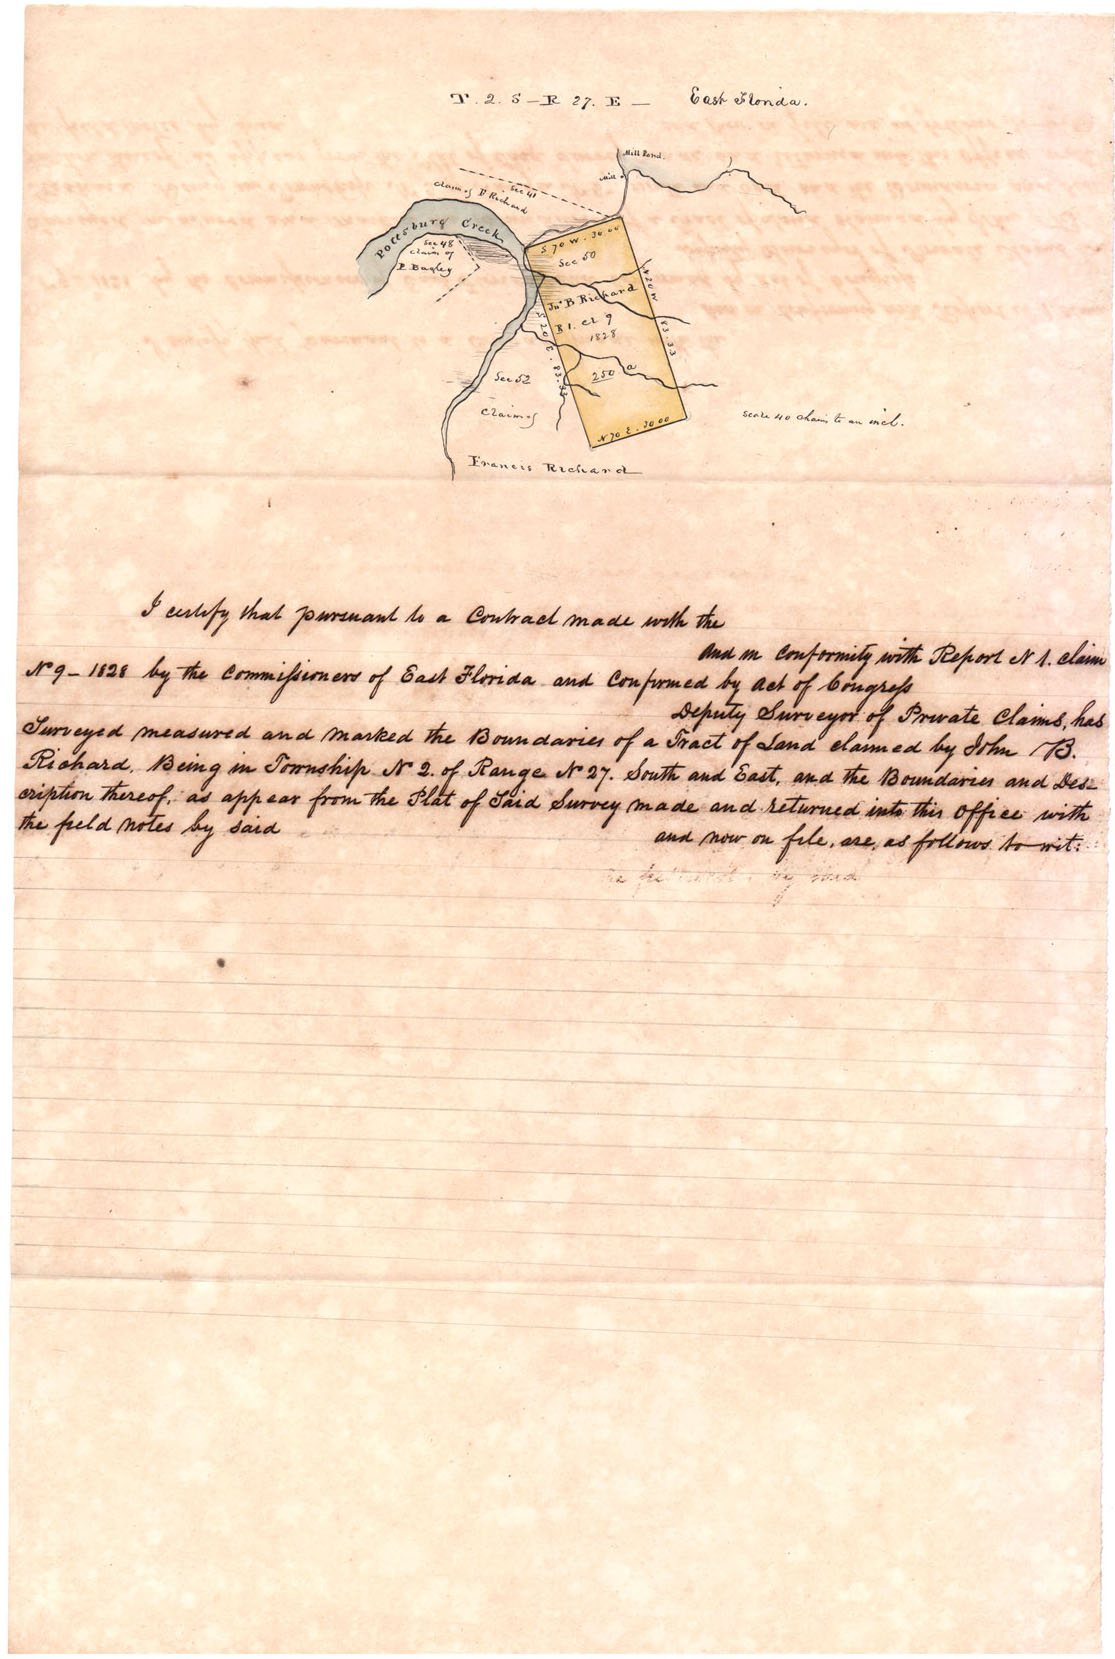 T. 2. S – R 27. E – East Florida.
Mill Pond.
Mill
Sec 41
Claim of F Richard
Pottsburg Creek
Sec 48
Claim of
P. Bagley
S 70 W. 30.00
Sec 50
N 20 W 83.33
Jno B Richard
R 1. Cl 9
1828
S 20 E. 83.33
250 a
N 70 E. 30.00
Sec 52
Claim of
Francis Richard
Scale 40 Chains to an inch.
I certify that pursuant to a Contract made with the
and in Conformity with Report N 1. Claim
No 9 – 1828 by the Commissioners of East Florida and Confirmed by act of Congress
Deputy Surveyor of Private Claims, has
Surveyed measured and marked the Boundaries of a Tract of Land claimed by John B.
Richard. Being in Township No 2. of Range No 27. South and East, and the Boundaries and Des-
cription thereof, as appear from the Plat of Said Survey made and returned into this office with
the field notes by said
and now on file, are, as follows to wit:
by said